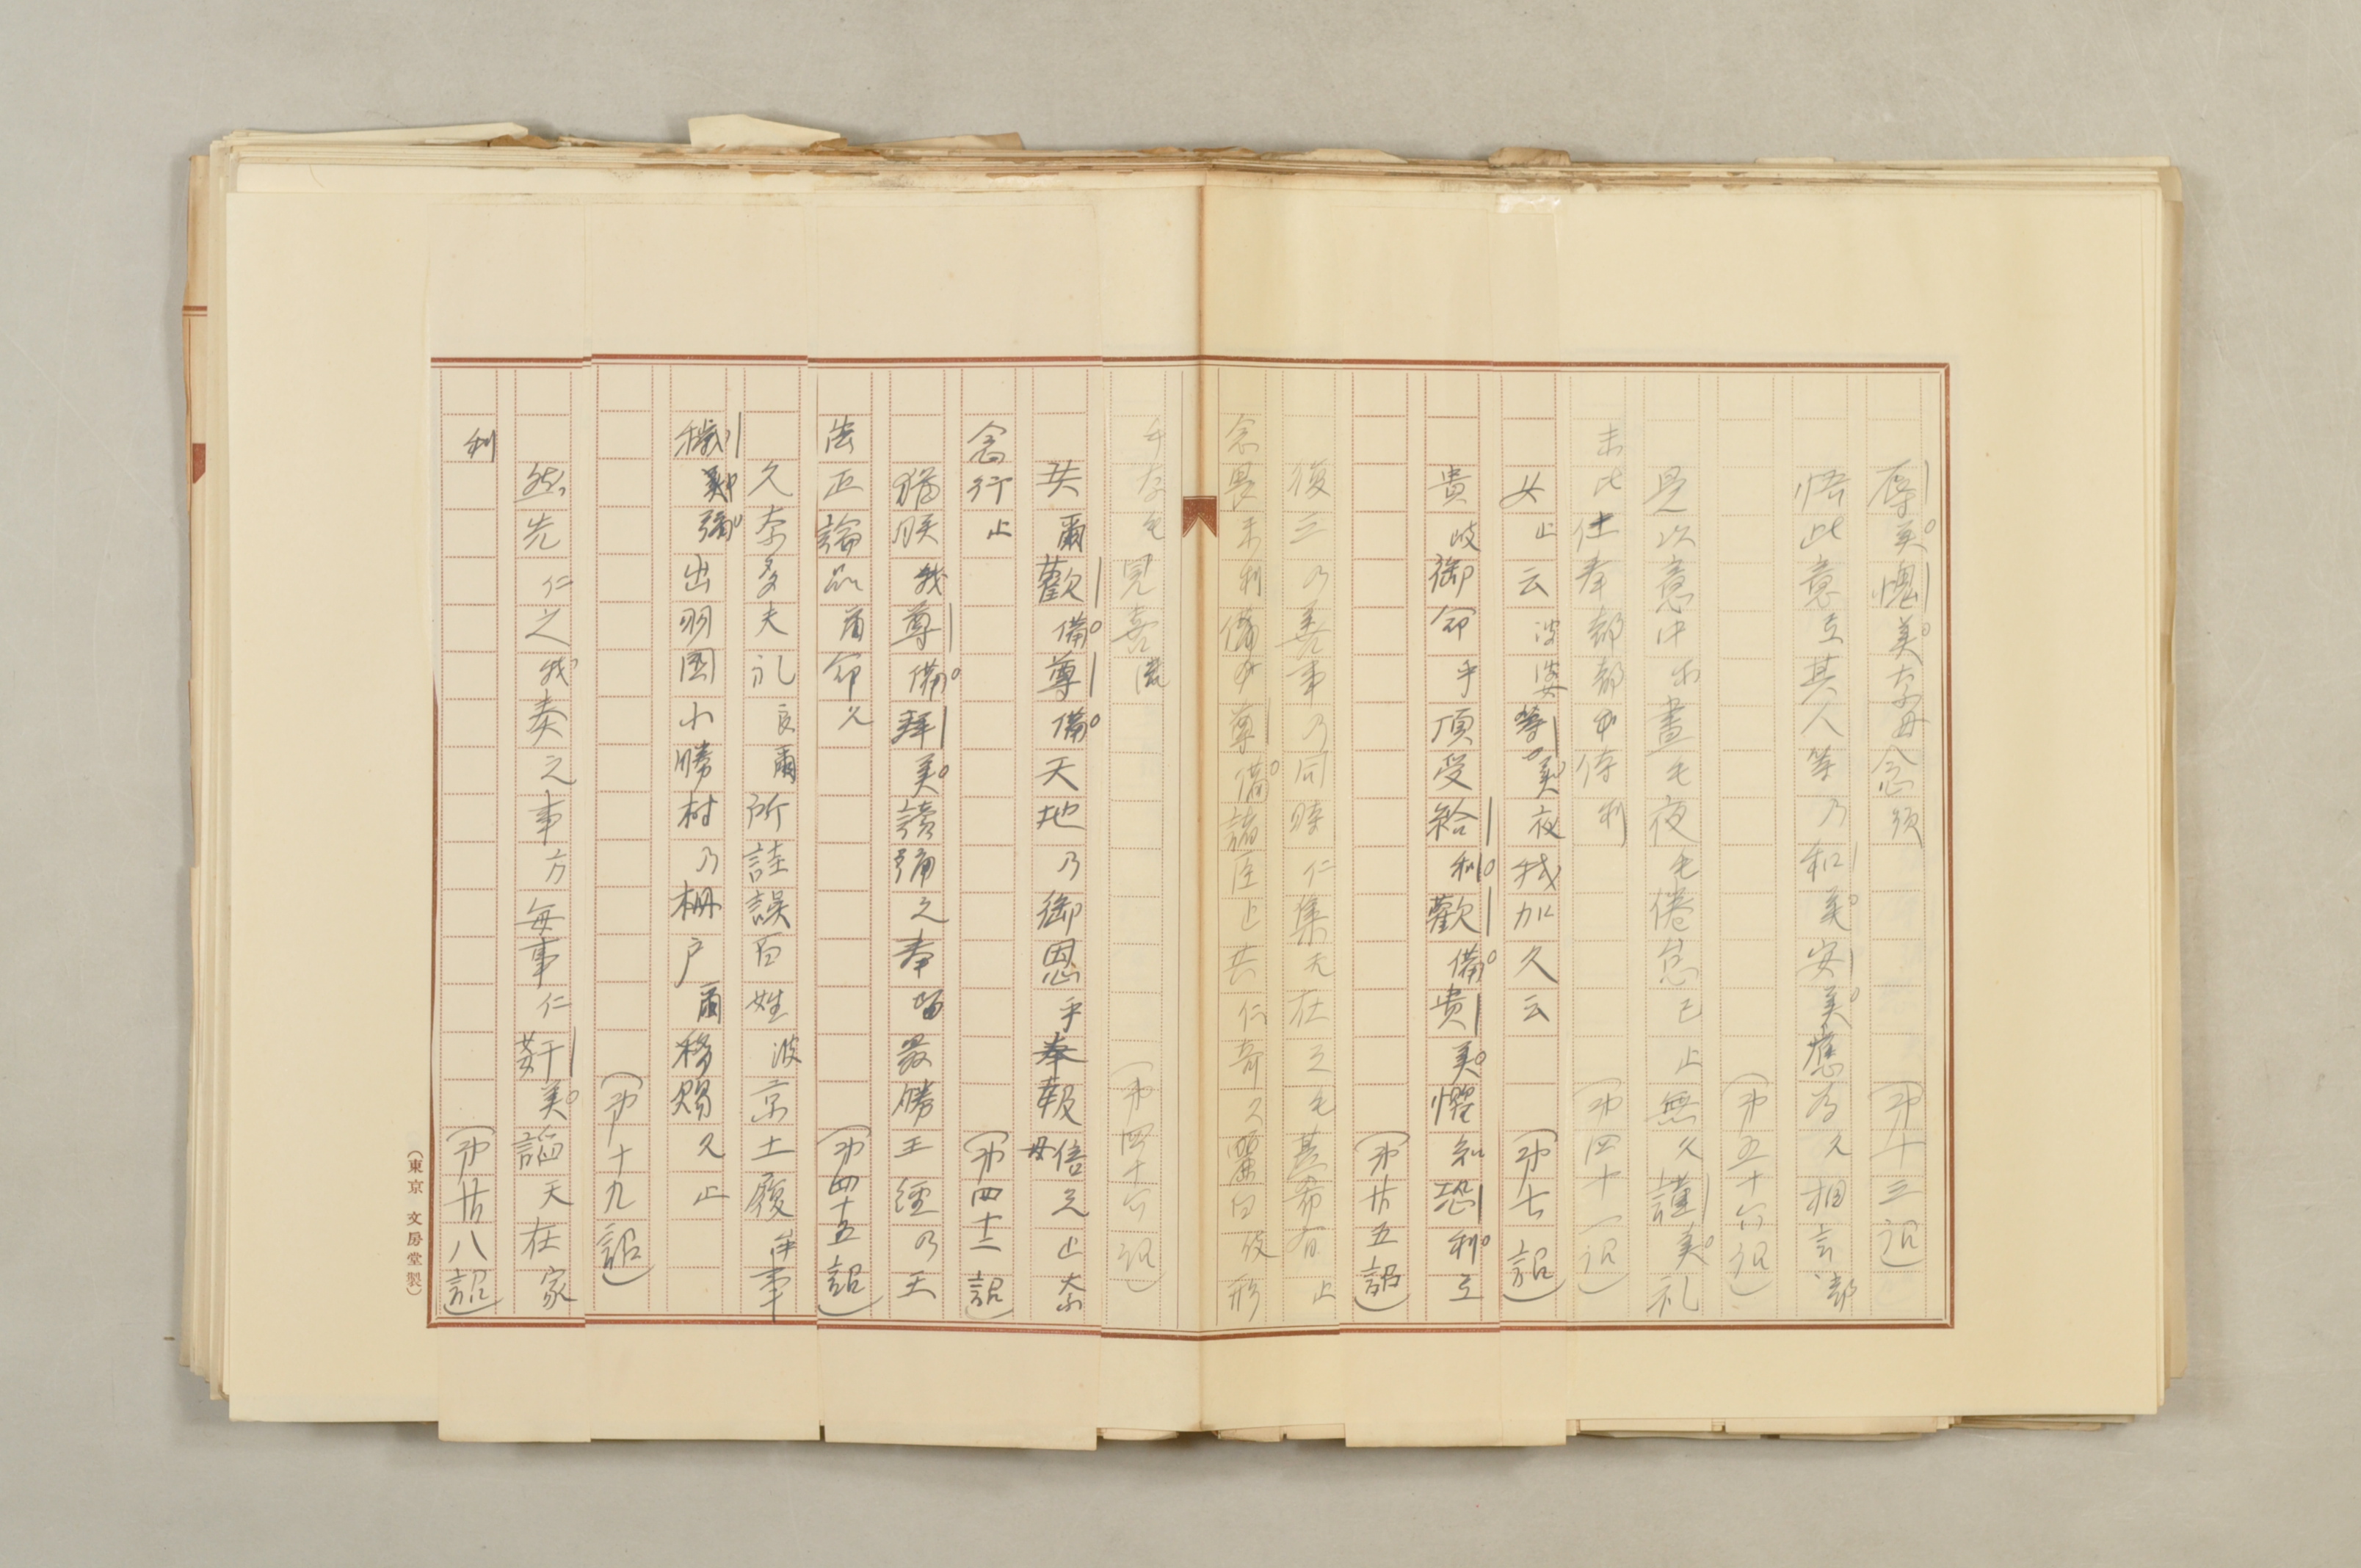 辱美愧美奈母念須 (第十三詔)
悟此意弖其人等乃和美安美應為久相言部
(第五十六詔)
是以意中仁晝毛夜毛倦怠己止無久謹美礼
末比仕奉都都侍利 (第四十一詔)
女止云波婆等美夜我加久云 (第七詔)
貴岐御命乎頂受給利歡備貴美懼知恐利弖
(第廿五詔)
復三乃善事乃同時仁集天在己毛甚希有止
念畏末利備尊備諸臣止共仁奇久麗白伎形
乎奈毛見喜流 (第四十六詔)
共爾歡備尊備天地乃御恩乎奉報倍之止奈母
念行止 (第四十二詔)
猶朕我尊備拜美讀誦之奉留最勝王經乃王
法正論品爾命久 (第四十五詔)
久奈多夫礼良爾所詿誤百姓波京土履牟事
穢弥出羽国小勝村乃柵戸爾移賜久止
(第十九詔)
然先仁之我奏之事方毎事仁奸美謟天在家
利 (第廿八詔)
(東京 文房堂製)